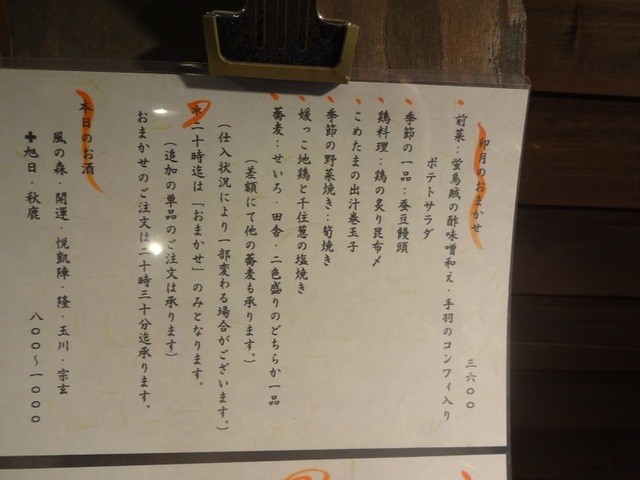 卯月のおまかせ 三六〇〇
前菜：蛍烏賊の酢味噌和え・手羽のコンフィ入り
ポテトサラダ
季節の一品：蚕豆饅頭
鶏料理：鶏の炙り昆布〆
こめたまの出汁巻玉子
季節の野菜焼き：筍焼き
媛っこ地鶏と千住葱の塩焼き
蕎麦：せいろ・田舎・二色盛りのどちらか一品
（差額にて他の蕎麦も承ります。）
（仕入状況により一部変わる場合がございます。）
＊二十時迄は「おまかせ」のみとなります。
（追加の単品のご注文は承ります）
おまかせのご注文は二十時三十分迄承ります。
本日のお酒
風の森・開運・悦凱陣・隆・玉川・宗玄
✚旭日・秋鹿 八〇〇〜一〇〇〇